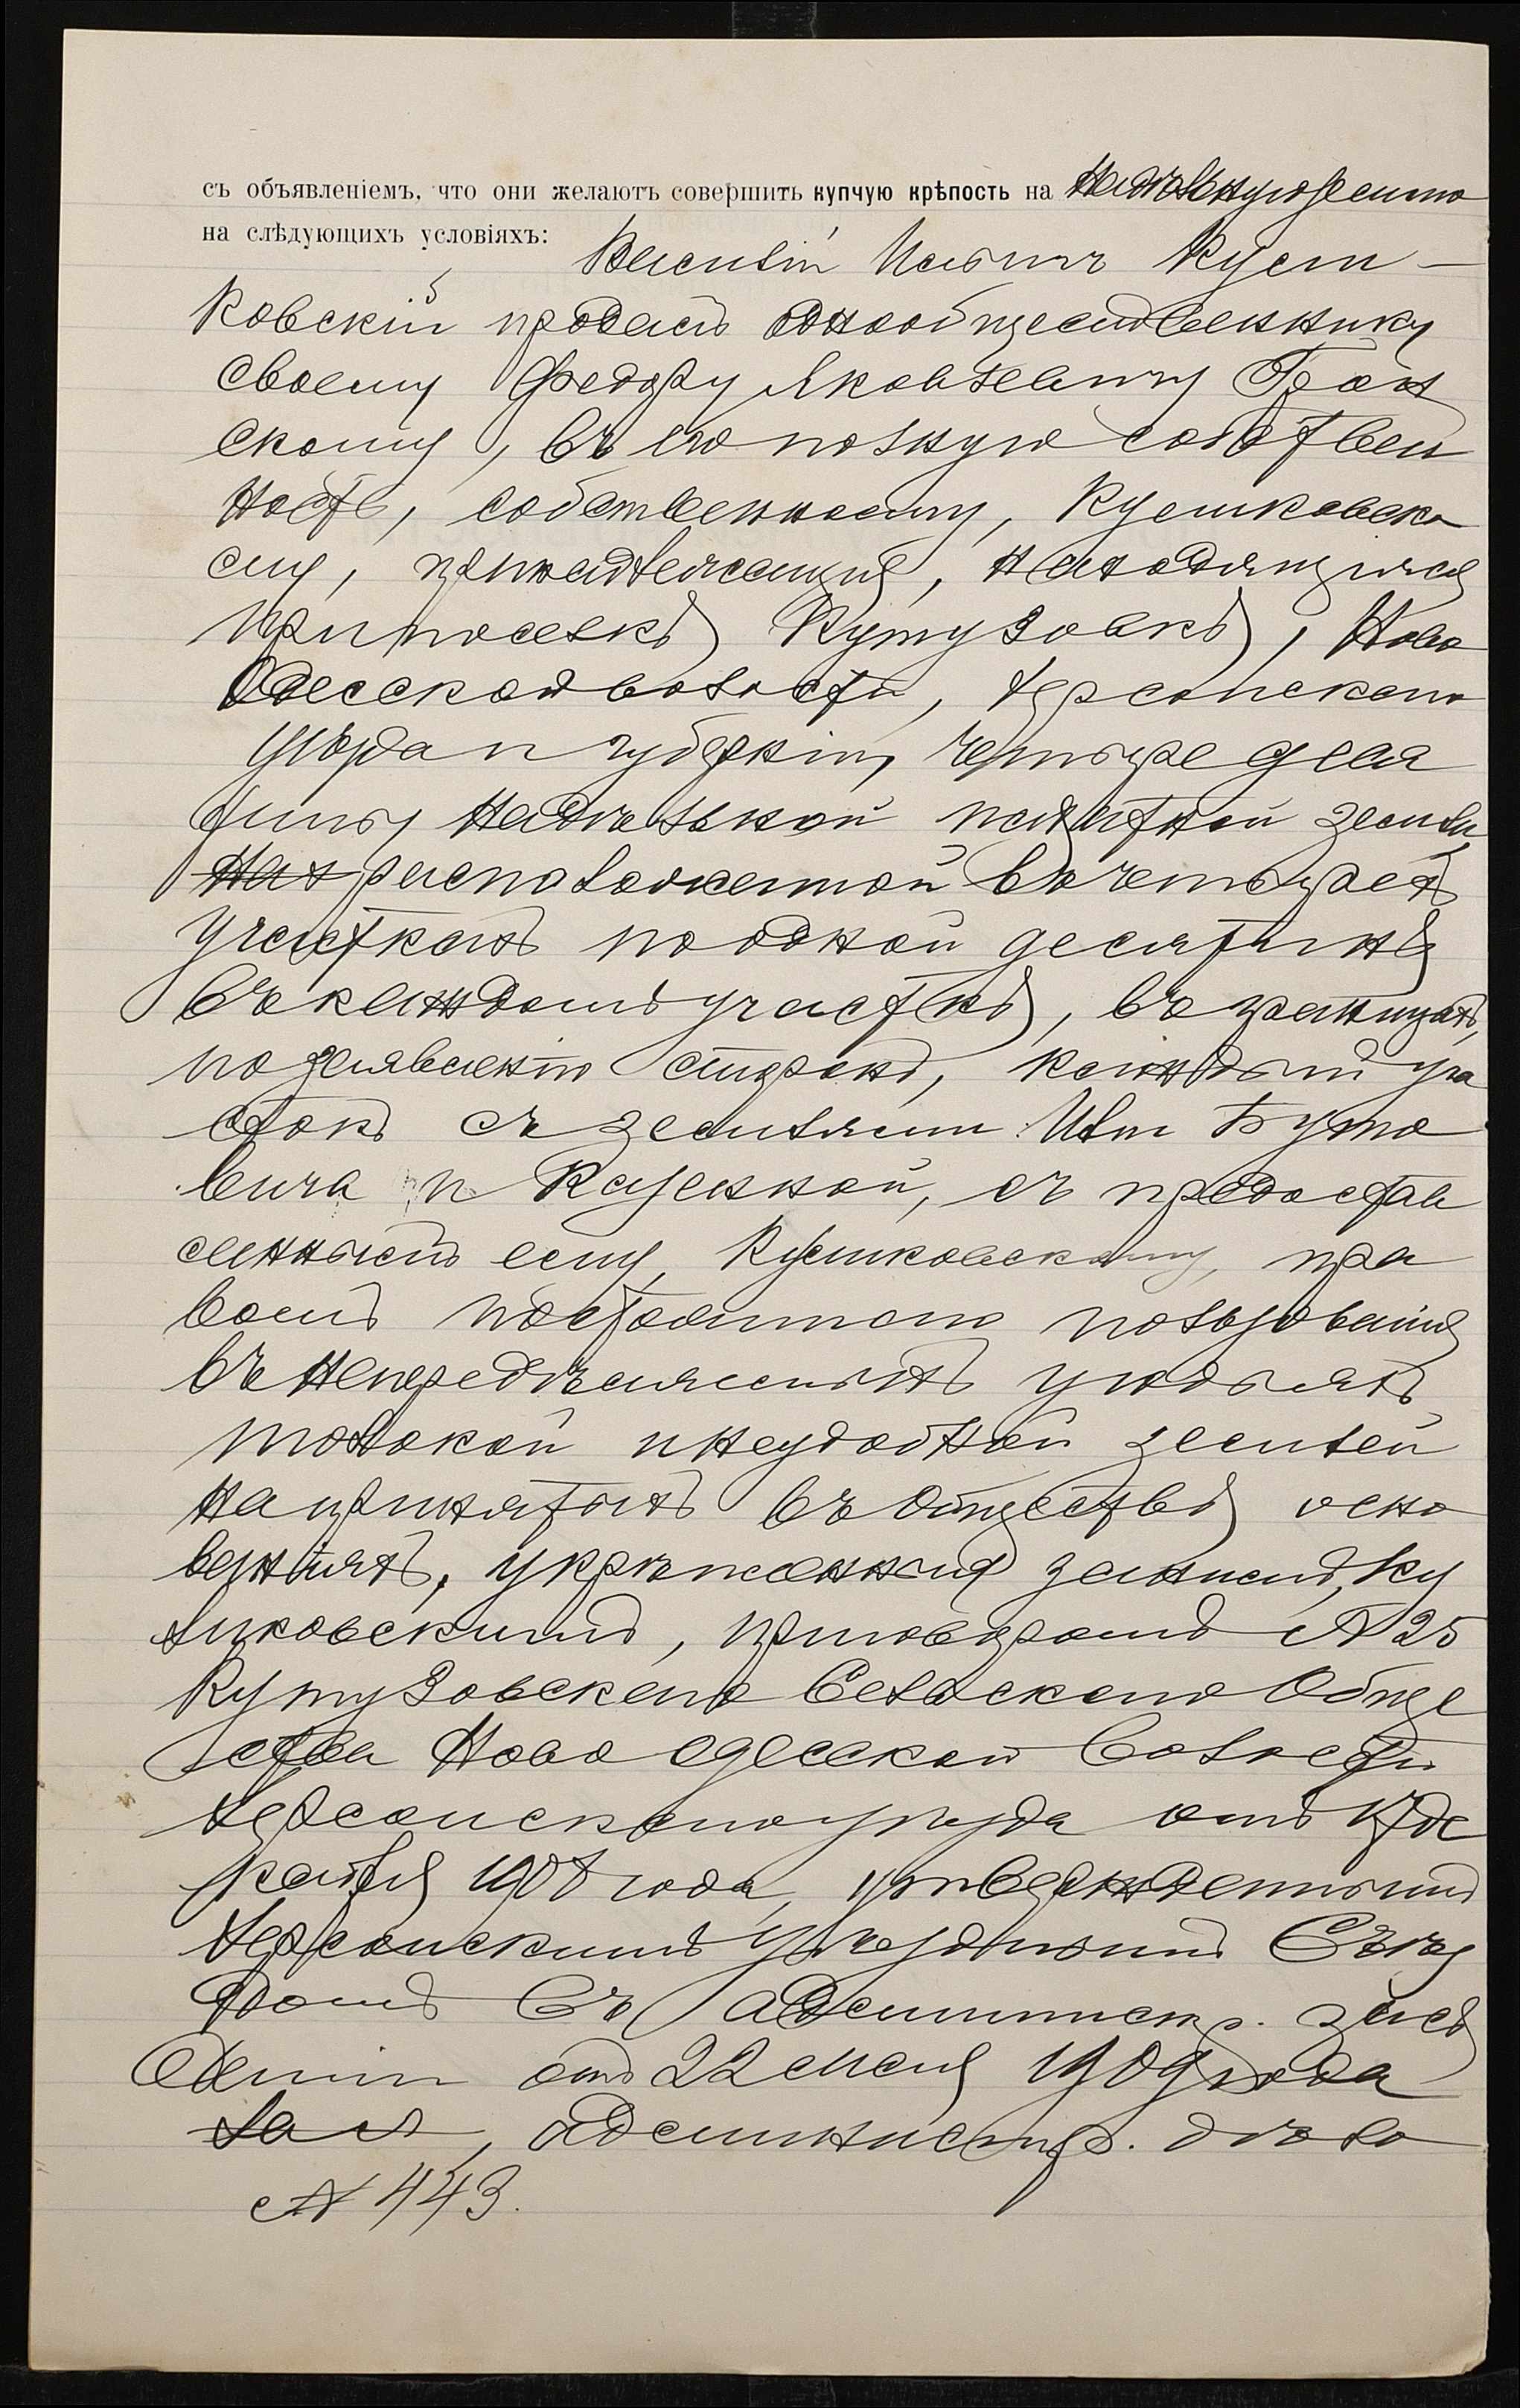 съ объявленіемъ, что они желаютъ совершить купчую крѣпость на надѣльную землю
на слѣдующихъ условіяхъ:
Василій Ильичъ
ковскій продалъ однообщественнику
своему Федору Яковлевичу Гран
скому, въ его полную собствен
ность, собственную, Кушковско
му, принадлежащую, находящуюся
при поселкѣ Кутузовкѣ, Ново
Одесской волости, Херсонскаго
уѣзда и губерніи, четыре деся
тины надѣльной полевой земли,
расположенной въ четырехъ
участкахъ по одной десятинѣ
въ каждомъ участкѣ, въ границахъ,
по заявленію сторонъ, каждый уча
стокъ съ землями: Ильи Буто
вича и Казенной, съ предостав
леннымъ ему, Кушковскому, пра
вомъ постояннаго пользованія
въ непередѣляемыхъ угодьяхъ
толокой и неудобной землей
на принятыхъ въ обществѣ осно
ваніяхъ, укрѣпленныя за нимъ, Ку
шковскимъ, приговоромъ № 25
Кутузовскаго Сельскаго Обще
ства Ново Одесской волости
Херсонскаго уѣзда отъ де
кабря 1908 года, утвержденнымъ
Херсонскимъ Уѣзднымъ Съѣз
домъ въ администр. засѣ
даніи отъ 22 мая 1909 года
администр. дѣло
№ 443.